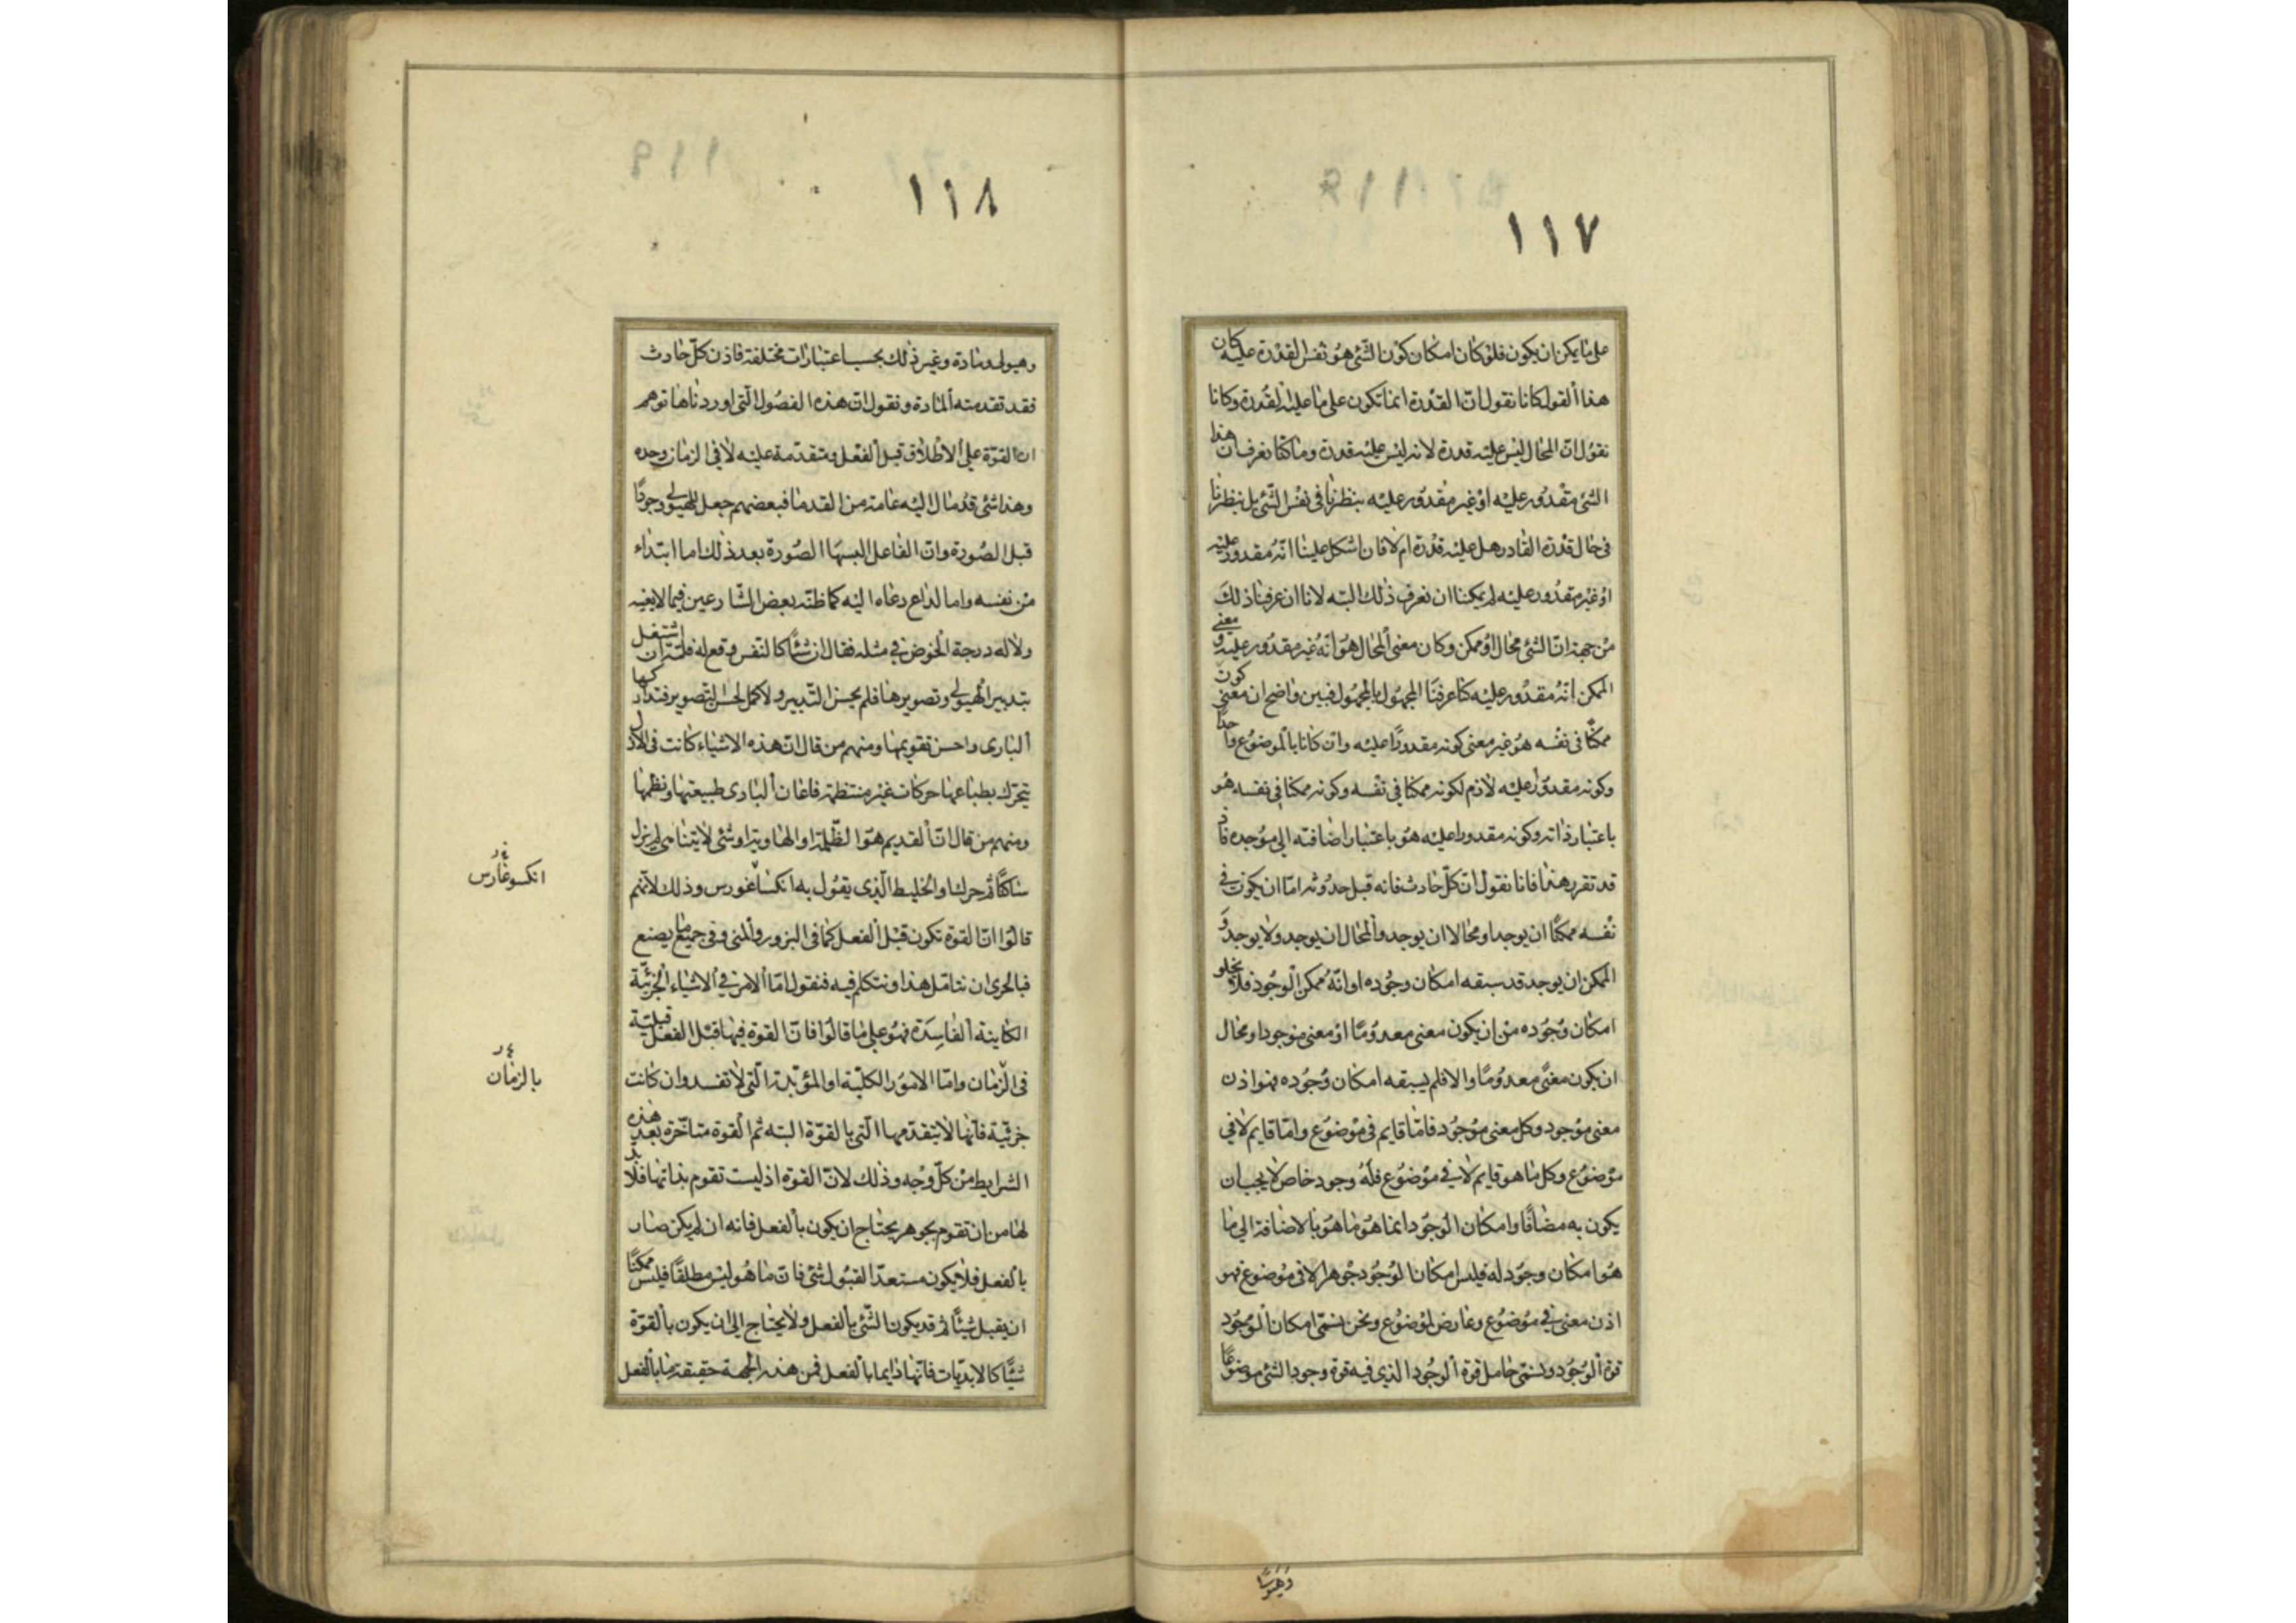 ١١٧
على ما يمكن ان يكون فلو كان امكان كون الشئ هو نفس القدرة عليه كان
هذا القول كانا نقول ان القدرة انما تكون على ما عليه القدرة وكانا
نقول ان المحال ليس عليه قدرة لانه ليس عليه قدرة وما كنا نعرف ان هذا
الشئ مقدور عليه او غير مقدور عليه بنظرنا فى نفس الشئ بل بنظرنا
فى حال قدرة القادر هل عليه قدرة ام لا فان اشكل علينا انه مقدور عليه
او غير مقدور عليه لم يمكننا ان نعرف ذلك البته لانا ان عرفنا ذلك
من جهة ان الشئ محال او ممكن وكان معنى المحال هو انه غير مقدور عليه و معنى
الممكن انه مقدور عليه كنا عرفنا المجهول بالمجهول فبين واضح ان معنى كون
ممكنا فى نفسه هو غير معنى كونه مقدورا عليه وان كانا بالموضوع واحدا
وكونه مقدورا عليه لازم لكونه ممكنا فى نفسه وكونه ممكنا فى نفسه هو
باعتبار ذاته وكونه مقدورا عليه هو باعتبار اضافته الى موجده فاذ
قد تقرر هذا فانا نقول ان كل حادث فانه قبل حدوثه اما ان يكون فى
نفسه ممكنا ان يوجد او محالا ان يوجد والمحال ان يوجد ولا يوجد و
الممكن ان يوجد قد سبقه امكان وجوده او انه ممكن الوجود فلا يخلو
امكان وجوده من ان يكون معنى معدوما او معنى موجودا ومحال
ان يكون معنى معدوما والا فلم يسبقه امكان وجوده فهو اذن
معنى موجود وكل معنى موجود فاما قايم فى موضوع واما قايم لا فى
موضوع وكل ما هو قايم لا فى موضوع فله وجود خاص لا يجب ان
يكون به مضافا وامكان الوجود انما هو ما هو بالاضافة الى ما
هو امكان وجود له فليس امكان الوجود جوهرا لا فى موضوع فهو
اذن معنى فى موضوع وعارض لموضوع ونحن نسمى امكان الوجود
قوة الوجود ونسمى حامل قوة الوجود الذى فيه قوة وجود الشئ موضوعا
وهيولى
١١٨
وهيولى ومادة وغير ذلك بحسب اعتبارات مختلفة فاذن كل حادث
فقد تقدمته المادة ونقول ان هذه الفصول التى اوردناها توهم
ان القوة على الاطلاق قبل الفعل ومتقدمة عليه لا فى الزمان وحده
وهذا شئ قد مال اليه عامة من القدما فبعضهم جعل للهيولى وجودا
قبل الصورة وان الفاعل البسها الصورة بعد ذلك اما ابتداء
من نفسه واما لداع دعاه اليه كما ظنه بعض الشارعين فيما لا يعنيه
ولا له درجة الخوض فى مثله فقال ان شئا كالنفس وقع له فلتة ان اشتغل
بتدبير الهيولى وتصويرها فلم يحسن التدبير ولا كمل لحسن التصوير فتداركها
البارى واحسن تقويمها ومنهم من قال ان هذه الاشياء كانت فى الازل
تتحرك بطباعها حركات غير منتظمة فاعان البارى طبيعتها ونظمها
ومنهم من قال ان القديم هو الظلمة او الهاوية او شئ لا يتناهى لم يزل
ساكنا ثم حرك او الخليط الذى يقول به انكساغورس وذلك لانهم
قالوا ان القوة تكون قبل الفعل كما فى البزور والمنى وفى جميع ما يصنع
فبالحرى ان نتامل هذا ونتكلم فيه فنقول اما الامر فى الاشياء الجزئية
الكاينة الفاسدة فهو على ما قالوا فان القوة فيها قبل الفعل قبلية
فى الزمان واما الامور الكلية او المؤبدة التى لا تفسد وان كانت
جزئية فانها لا يتقدمها التى بالقوة البته ثم القوة متاخرة بعد هذه
الشرايط من كل وجه وذلك لان القوة اذ ليست تقوم بذاتها فلا بد
لها من ان تقوم بجوهر يحتاج ان يكون بالفعل فانه ان لم يكن صار
بالفعل فلا يكون مستعدا لقبول شئ فان ما هو ليس مطلقا فليس ممكنا
ان يقبل شيئا ثم قد يكون الشئ بالفعل ولا يحتاج الى ان يكون بالقوة
شيئا كالابديات فانها دايما بالفعل فمن هذه الجهة حقيقة ما بالفعل
انكسوغارس
بالزمان